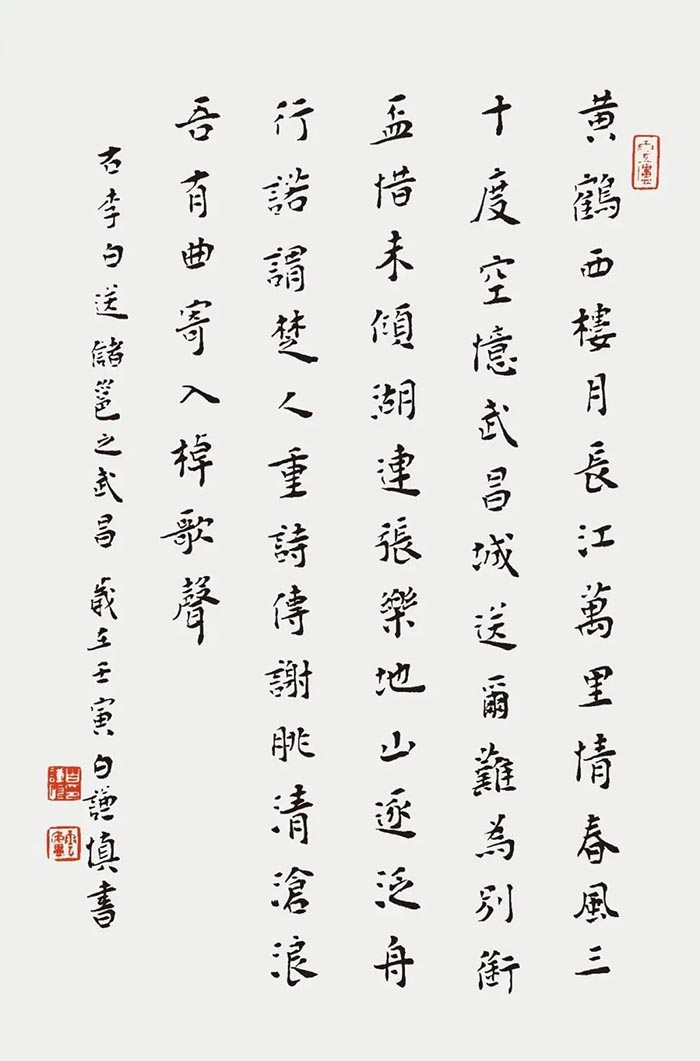 黄鶴西樓月長江萬里情春風三
十度空憶武昌城送爾難為別銜
盃惜未傾湖連張樂地山逐泛舟
行諾謂楚人重詩傳謝朓清滄浪
吾有曲寄入棹歌聲
右李白送儲邕之武昌 歲在壬寅白謙慎書